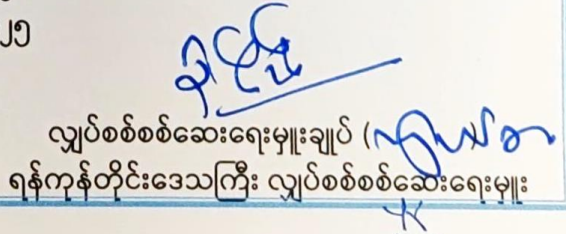 ၂၅
လျှပ်စစ်စစ်ဆေးရေးမှူးချုပ် (
ရန်ကုန်တိုင်းဒေသကြီး လျှပ်စစ်စစ်ဆေးရေးမှူး